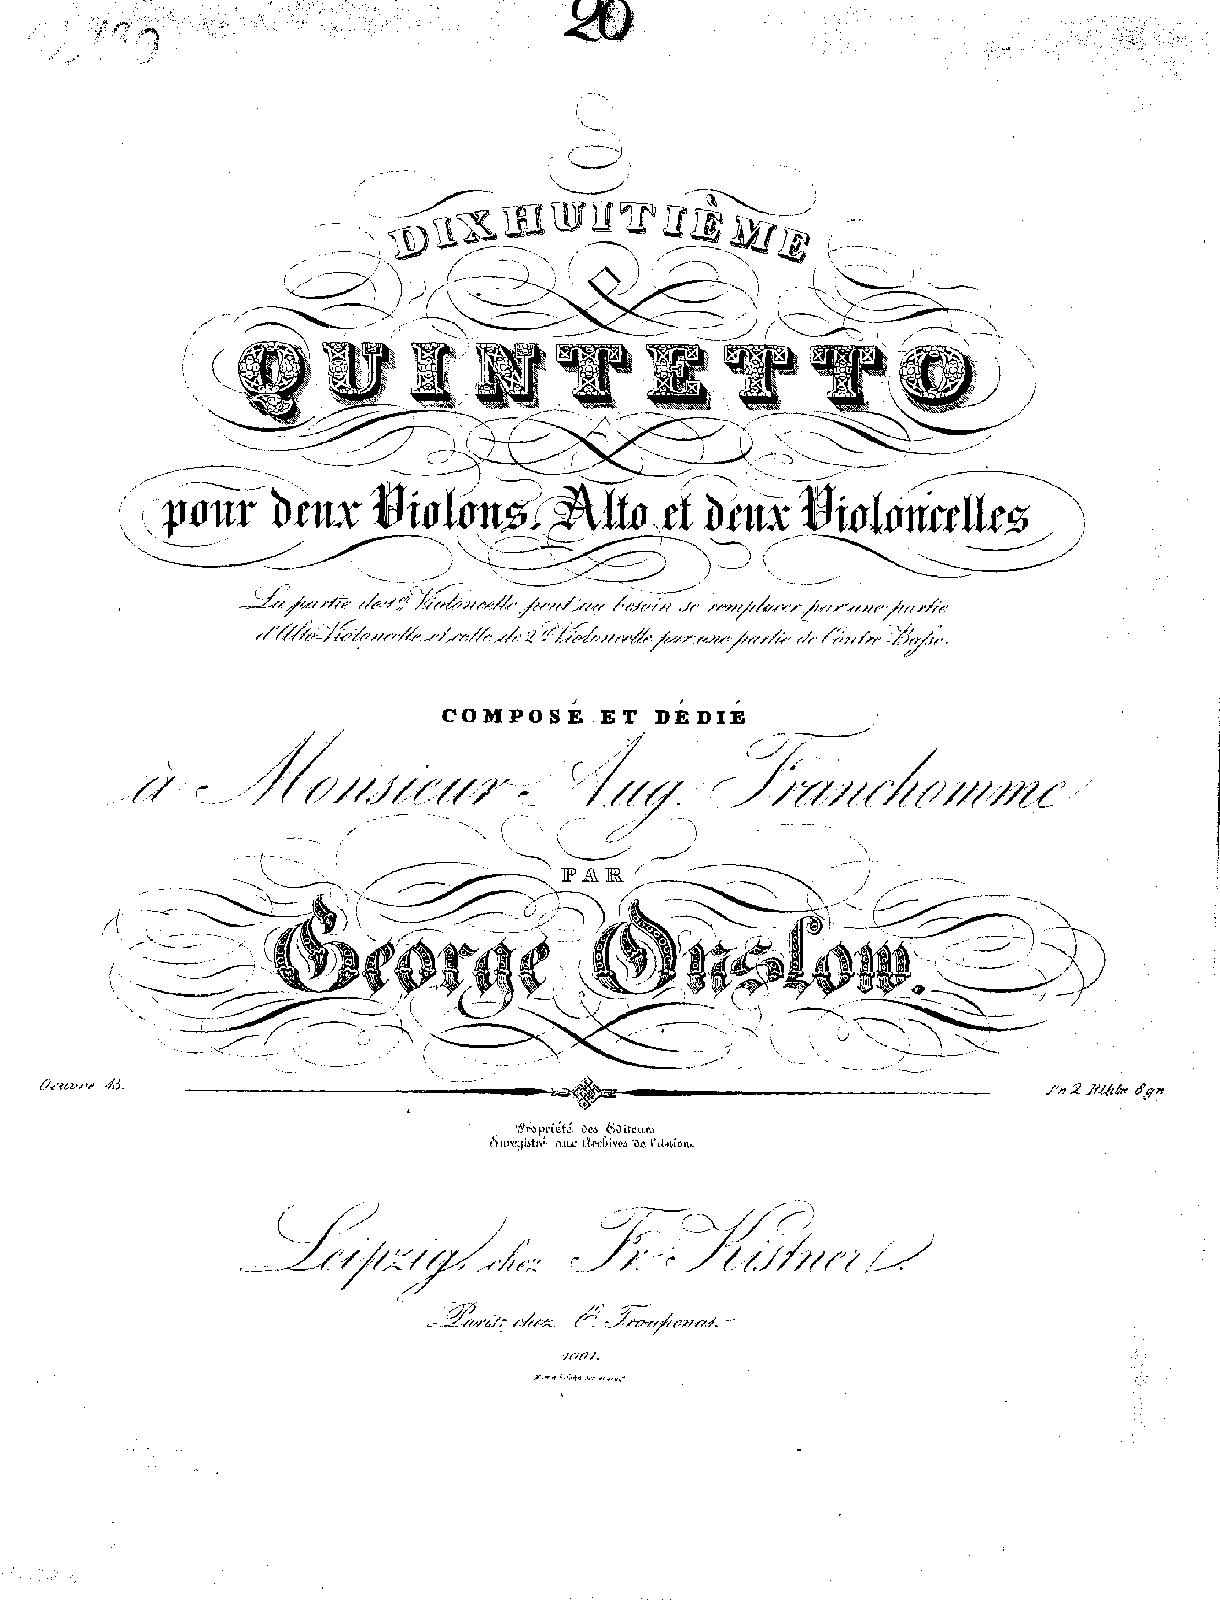 20
DIXHUITIÈME
QUINTETTO
pour deux Violons, Alto et deux Violoncelles
La partie de 1er Violoncelle peut au besoin se remplacer par une partie
d'Alto-Violoncelle et celle de 2d Violoncelle par une partie de Contre-Basse.
COMPOSÉ ET DÉDIÉ
à Monsieur Aug. Franchomme
PAR
George Onslow.
Oeuvre 45.
Pr. 2 Rthlr 8 gr.
Propriété des Editeurs
Enregistré aux Archives de l'Union.
Leipzig, chez Fr. Kistner.
Paris, chez E. Troupenas.